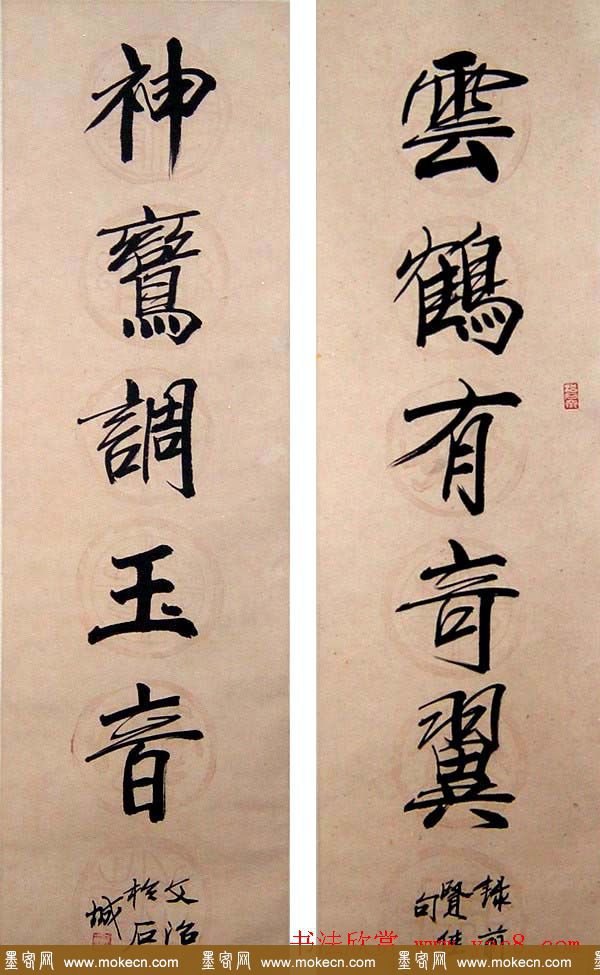 雲鶴有奇翼
神鸞調玉音
錄前
賢佳
句
文治
於石
城
书法欣赏
墨客网 www.mokecn.com 墨客网 www.mokecn.com 墨客网 www.mokecn.com